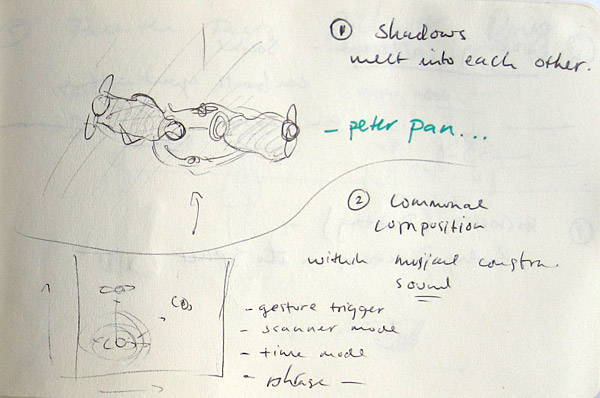 ① Shadows
melt into each other.
- peter pan...
② Communal
composition
within musical constra.
sound
- gesture trigger
- scanner mode
- time mode
- phrase —